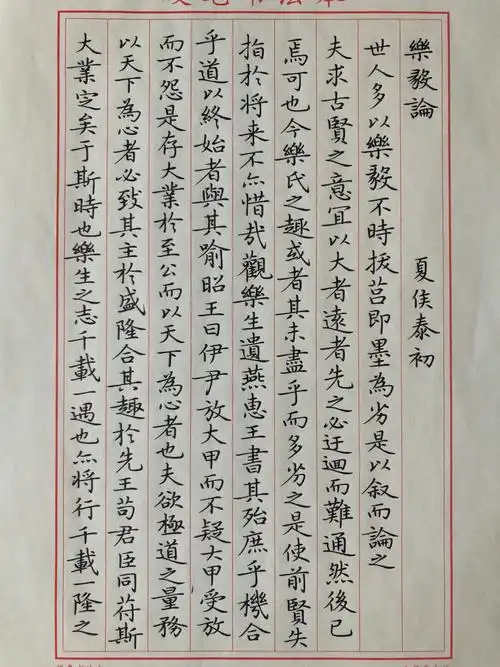 樂毅論 夏侯泰初
世人多以樂毅不時拔莒即墨為劣是以叙而論之
夫求古賢之意宜以大者遠者先之必迂迴而難通然後已
焉可也今樂氏之趣或者其未盡乎而多劣之是使前賢失
指於将来不亦惜哉觀樂生遺燕惠王書其殆庶乎機合
乎道以終始者與其喻昭王曰伊尹放大甲而不疑大甲受放
而不怨是存大業於至公而以天下為心者也夫欲極道之量務
以天下為心者必致其主於盛隆合其趣於先王苟君臣同苻斯
大業定矣于斯時也樂生之志千載一遇也亦将行千載一隆之